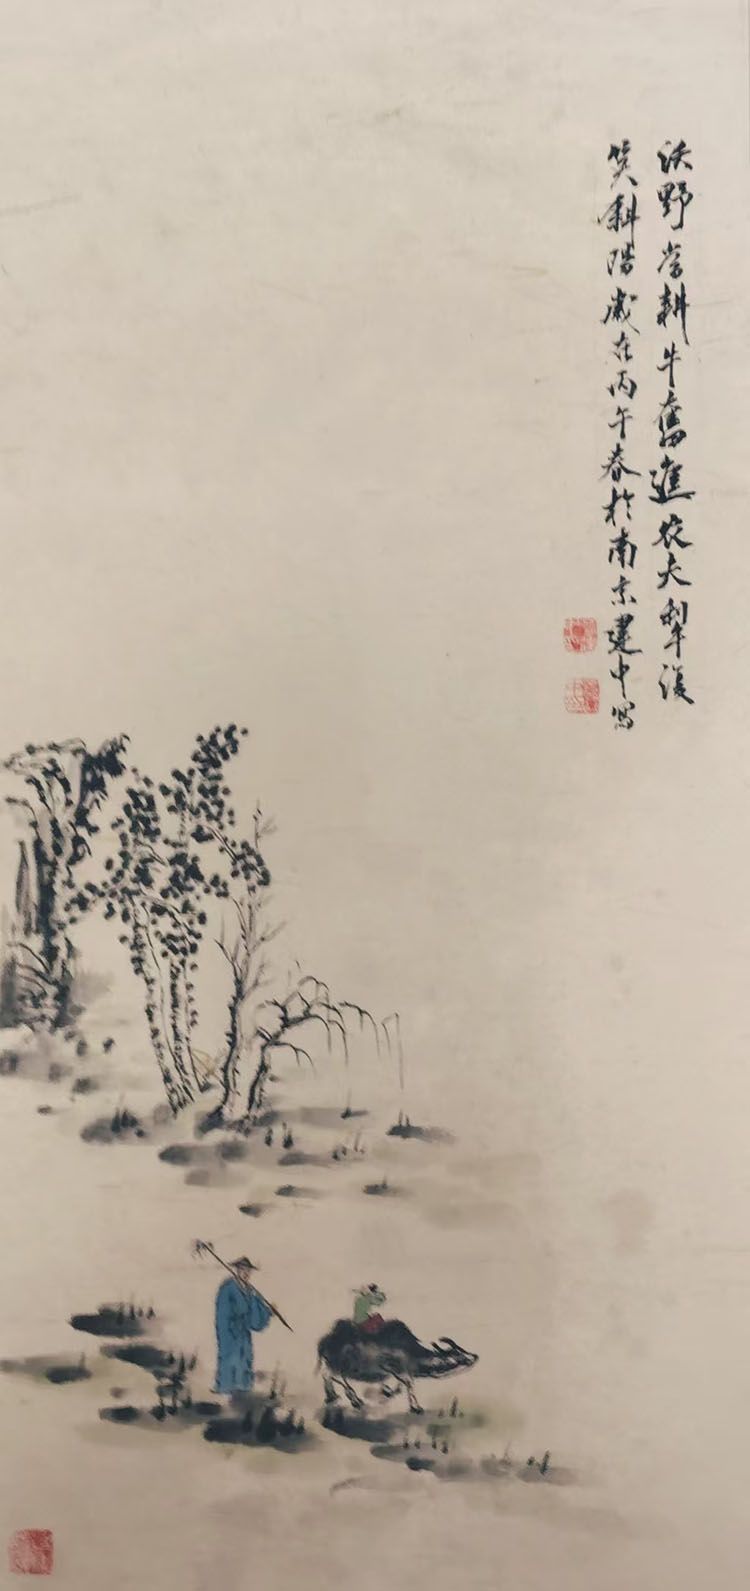 沃野常耕牛奮進农夫犁後
笑斜陽歲在丙午春於南京建中写